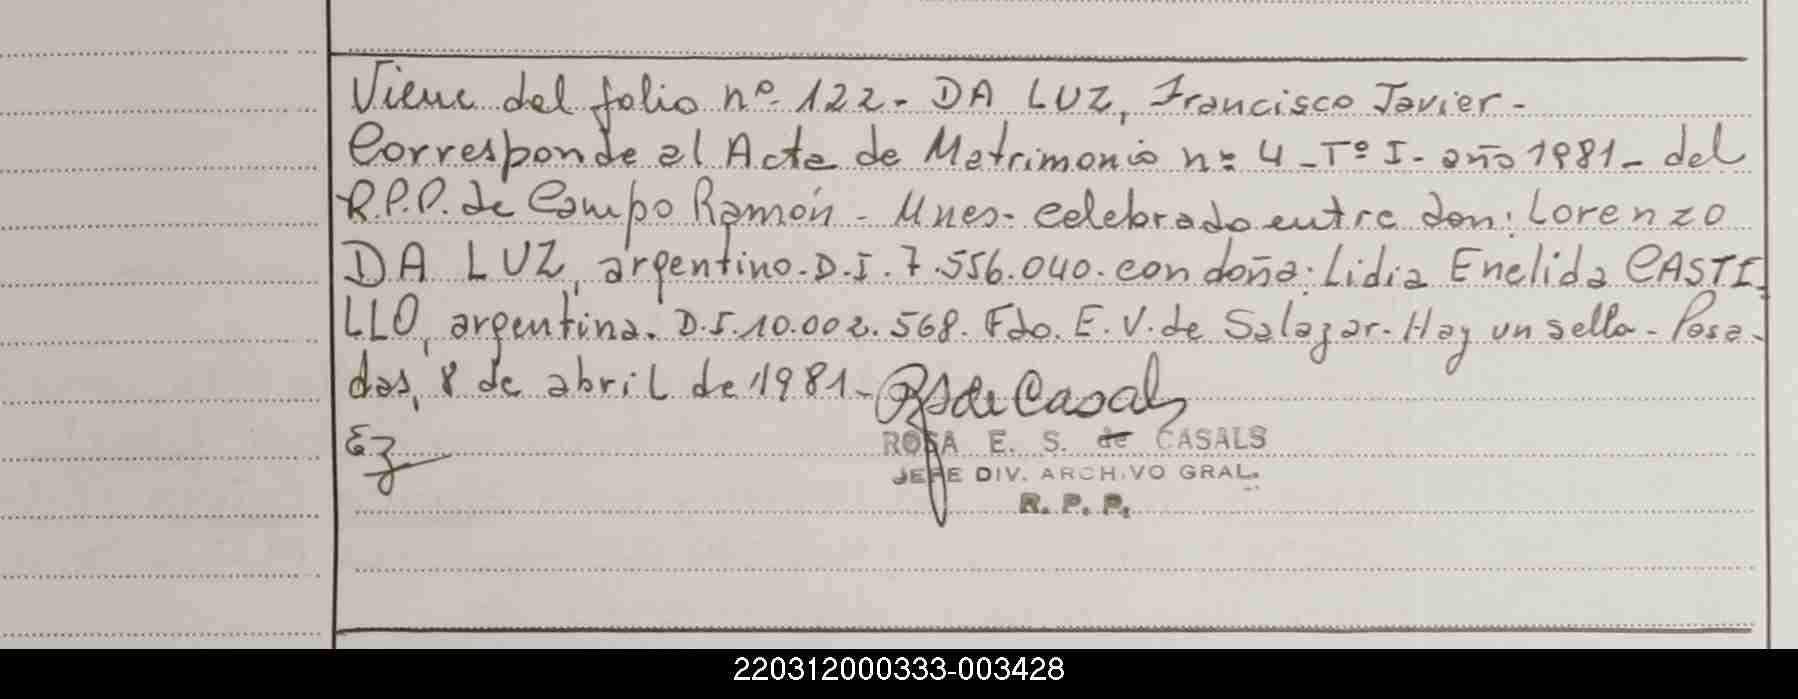 Viene del folio nº 122- DA LUZ, Francisco Javier-
Corresponde al Acta de Matrimonio n: 4-Tº I- año 1981- del
R.P.P. de Campo Ramón - Mnes- celebrado entre don: Lorenzo
DA LUZ, argentino-D.I. 7.556.040- con doña: Lidia Enelida CASTI
LLO, argentina. D.I. 10.002.568. Fdo. E. V. de Salazar- Hay un sello- Posa-
das, 8 de abril de 1981- RS de Casals
ROSA E. S. de CASALS
JEFE DIV. ARCHIVO GRAL.
R. P. P.
220312000333-003428